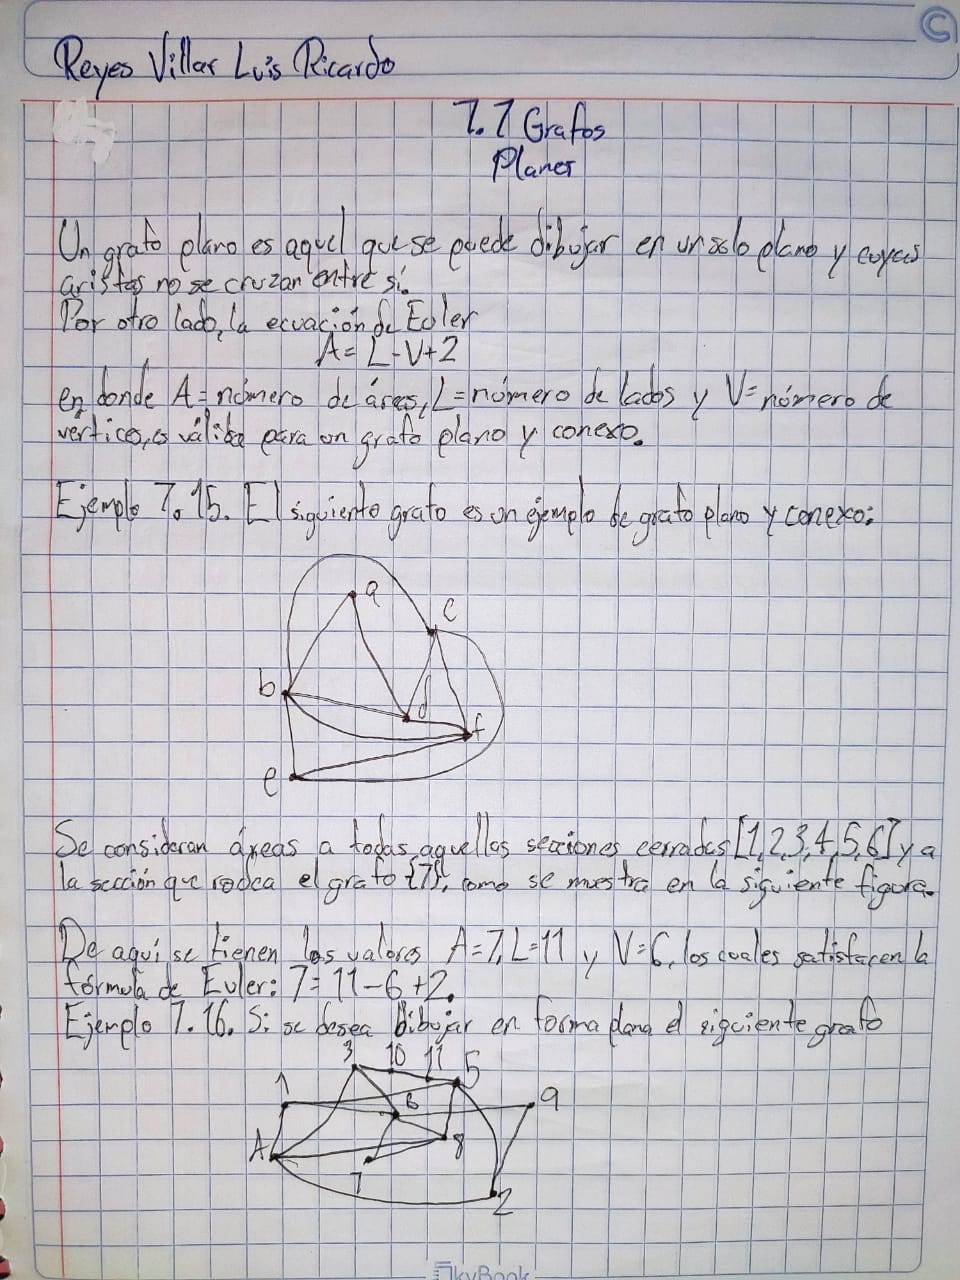 Reyes Villar Luis Ricardo
7.7 Grafos
Planos
Un grafo plano es aquel que se puede dibujar en un solo plano y cuyas
aristas no se cruzan entre sí.
Por otro lado, la ecuación de Euler
A = L - V + 2
en donde A = número de áreas, L = número de lados y V = número de
vértices, es válida para un grafo plano y conexo.
Ejemplo 7.15. El siguiente grafo es un ejemplo de grafo plano y conexo:
a
c
b
d
f
e
Se consideran áreas a todas aquellas secciones cerradas [1,2,3,4,5,6] y a
la sección que rodea el grafo {7}, como se muestra en la siguiente figura.
De aquí se tienen los valores A=7, L=11 y V=6, los cuales satisfacen la
fórmula de Euler: 7 = 11 - 6 + 2.
Ejemplo 7.16. Si se desea dibujar en forma plana el siguiente grafo
3 10 11 5
1 6 9
A 8
7
2
SkyBook